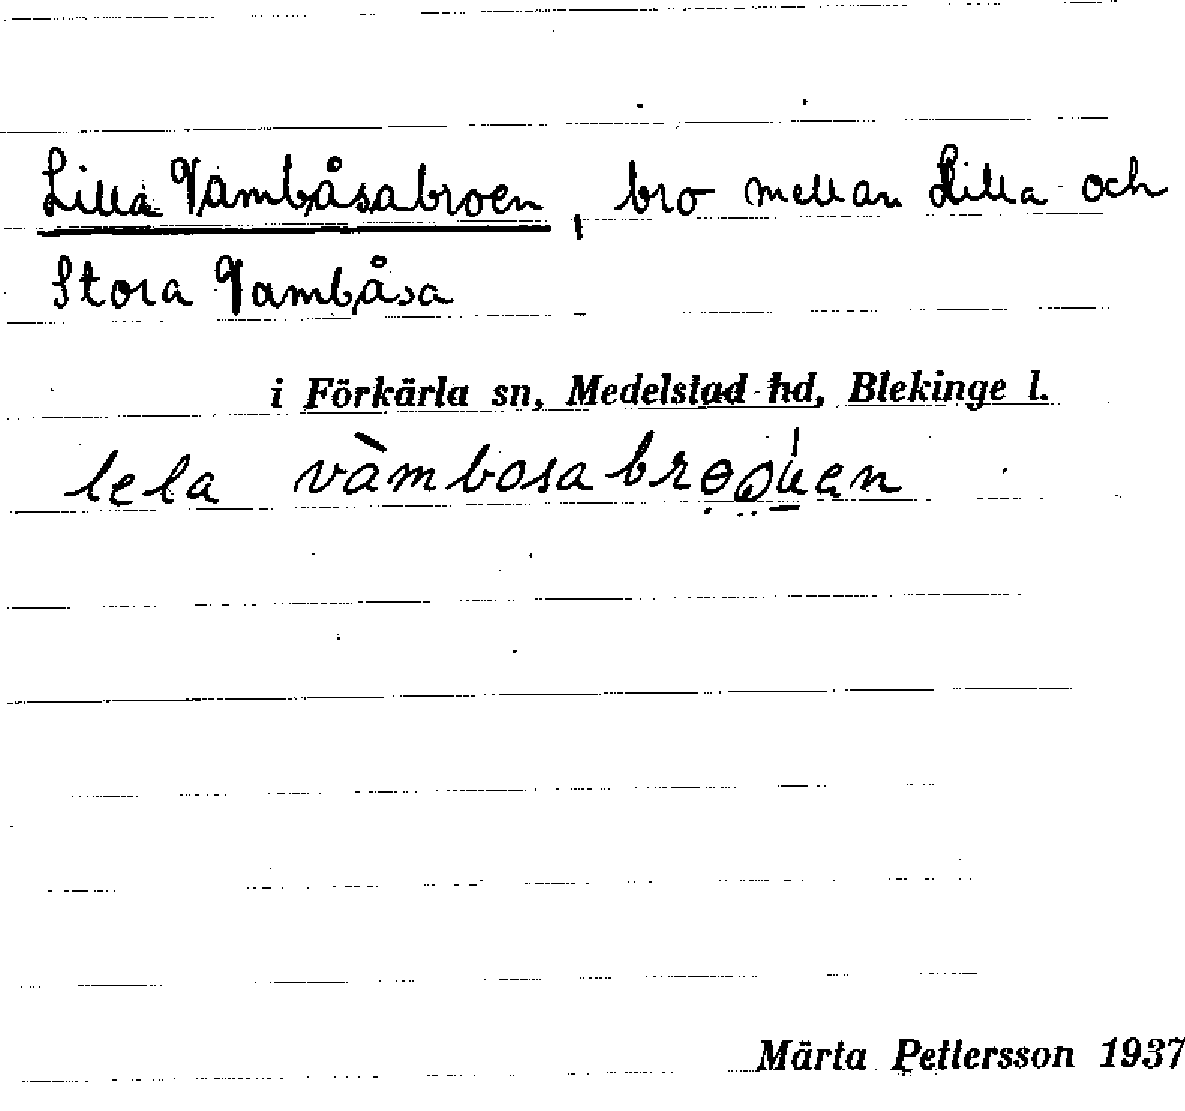 Lilla Vambåsabroen, bro mellan Lilla och
Stora Vambåsa
i Förkärla sn, Medelstad hd, Blekinge l.
lela
Märta Pettersson 1937